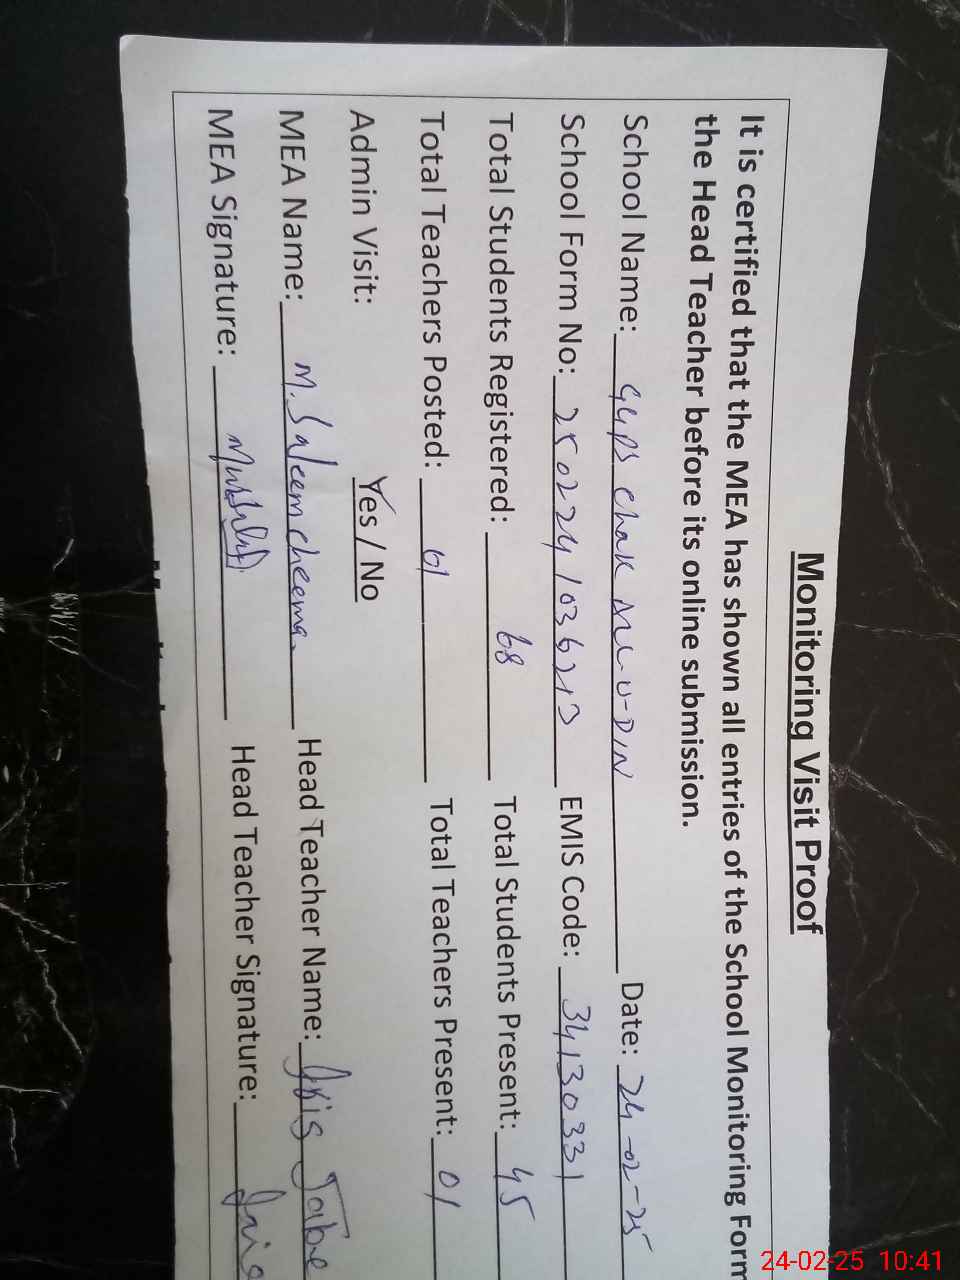 Monitoring Visit Proof
It is certified that the MEA has shown all entries of the School Monitoring Form
the Head Teacher before its online submission.
School Name: GGPS Chak Date: 24-02-25
School Form No: 250224 1036213 EMIS Code: 34130331
Total Students Registered: 68 Total Students Present: 45
Total Teachers Posted: 01 Total Teachers Present: 01
Admin Visit: Yes / No
MEA Name: M. Saleem cheema. Head Teacher Name:
MEA Signature: Head Teacher Signature:
24-02-25 10:41